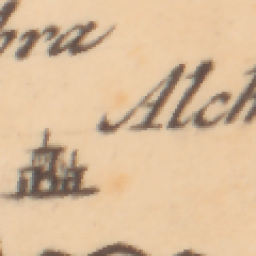 bræ
Alch